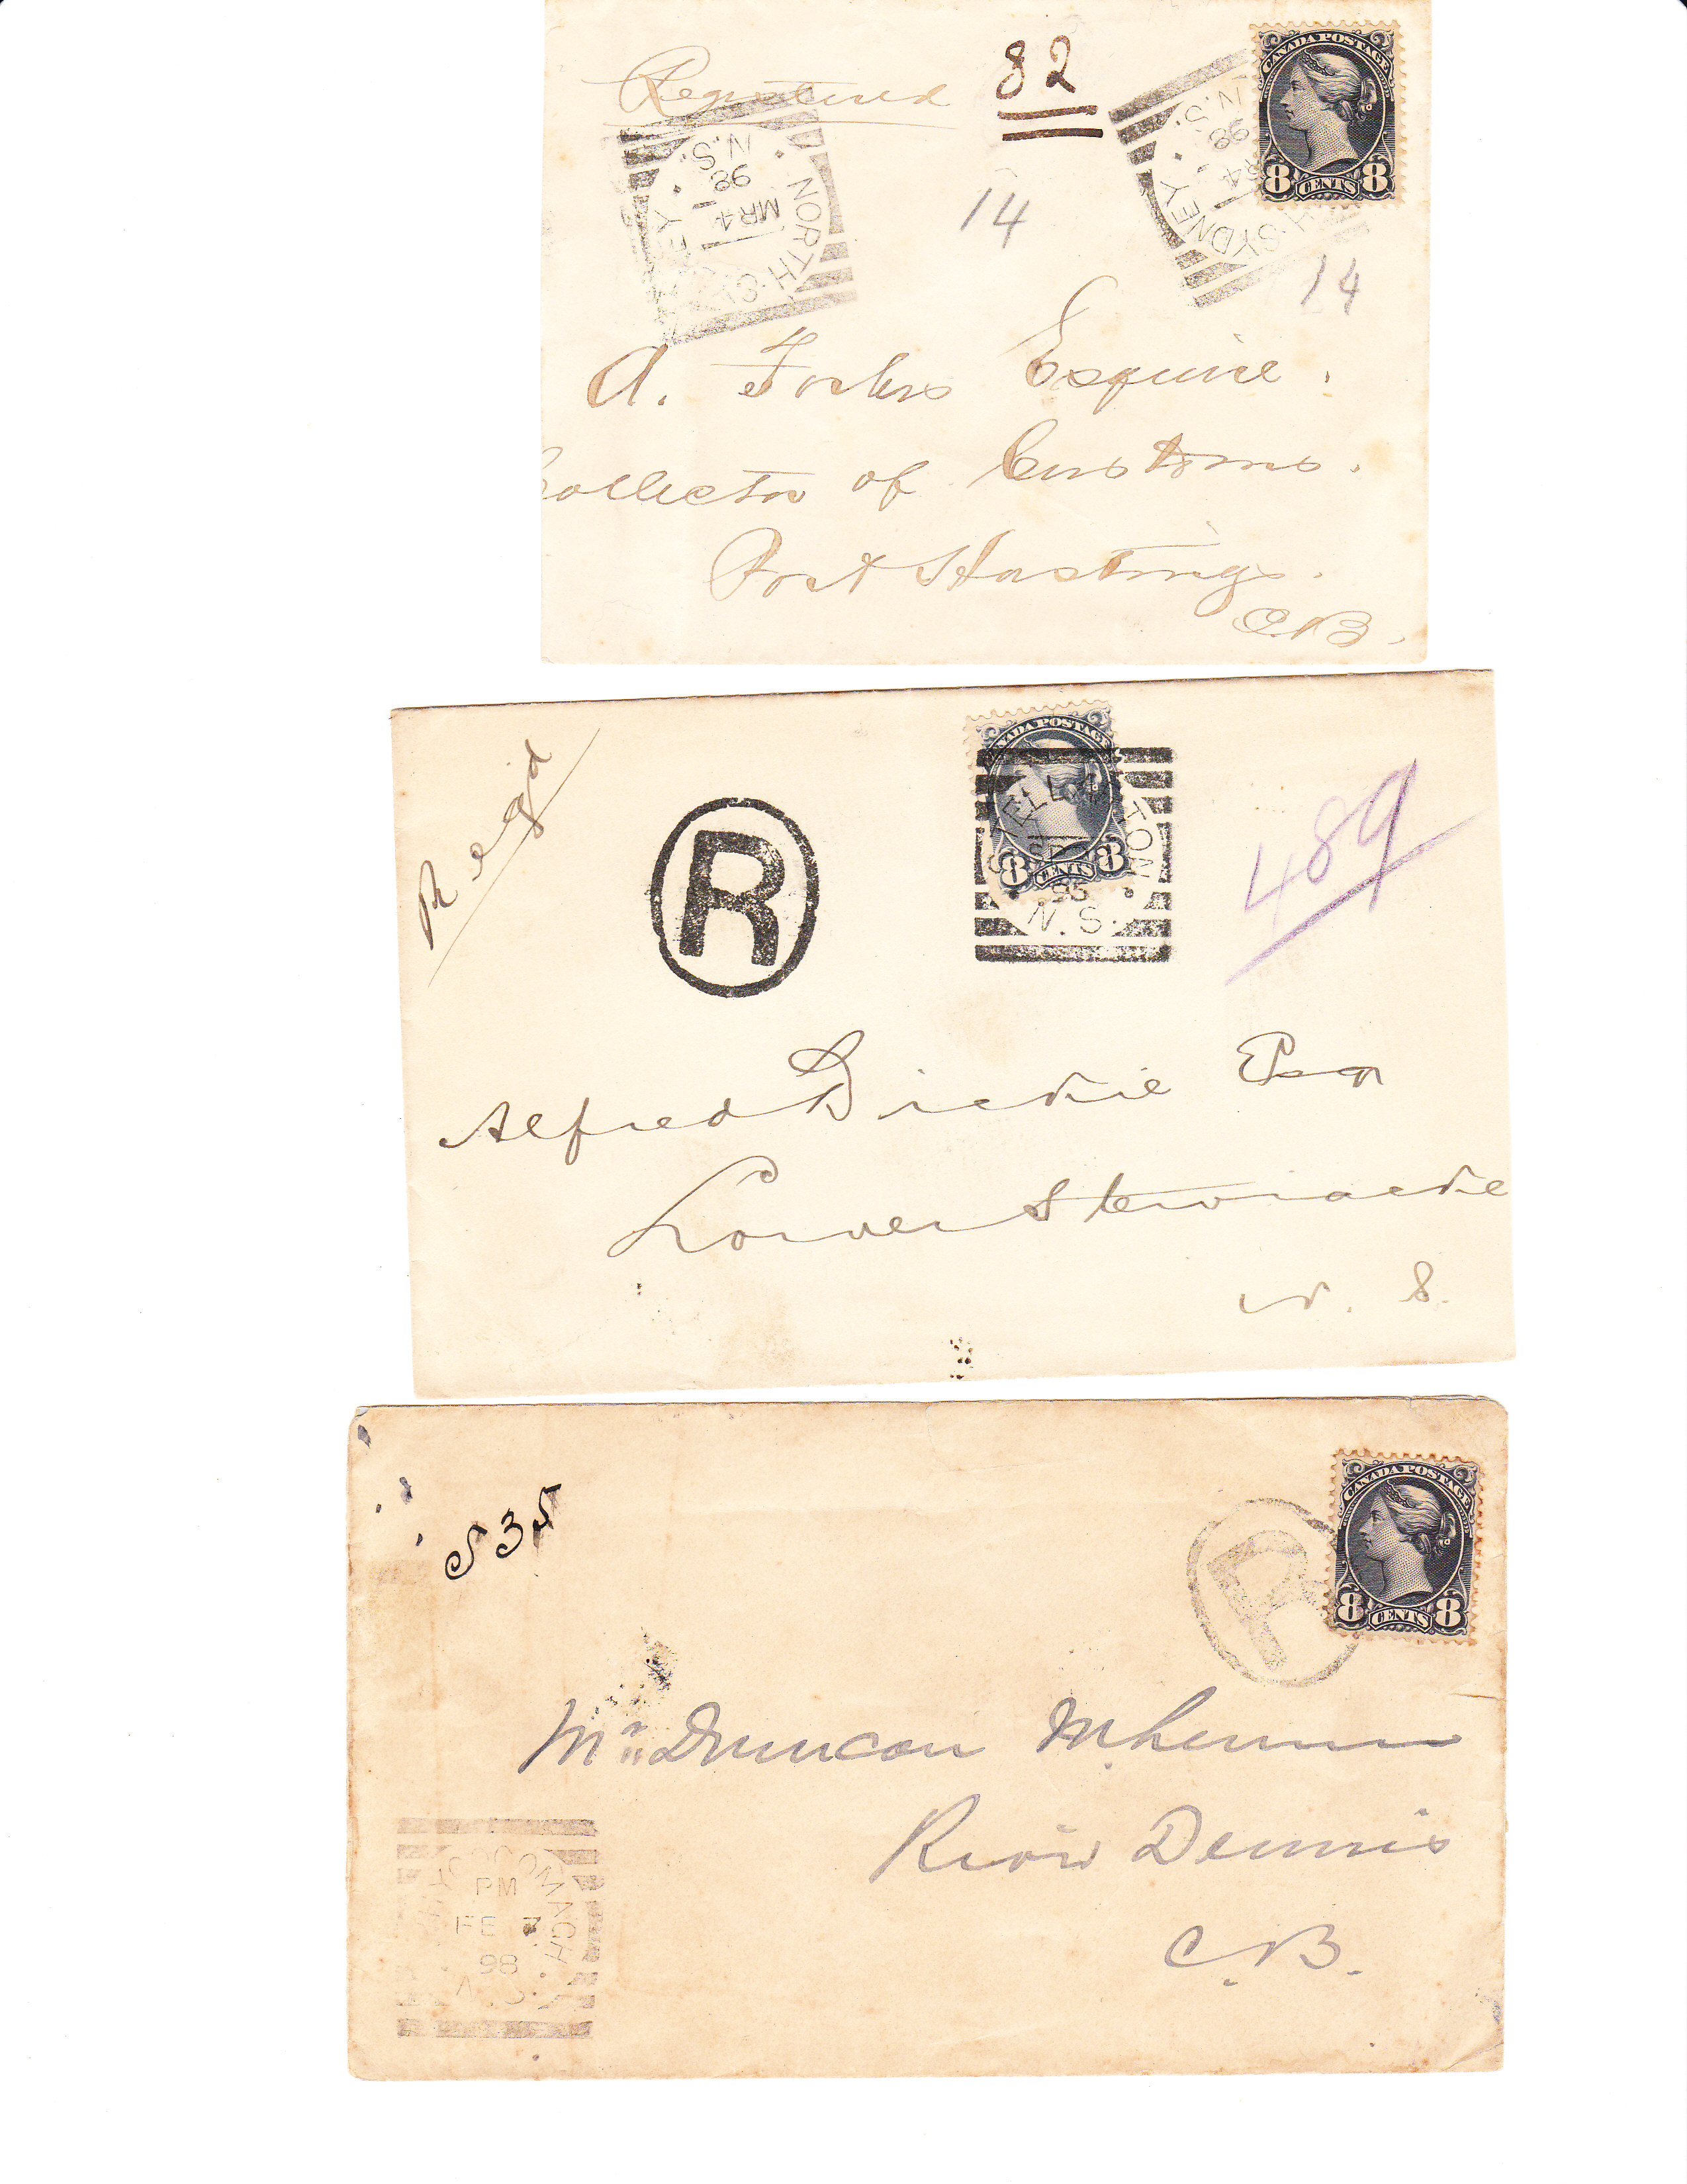 Registered 82
CANADA POSTAGE
8 CENTS 8
NORTH SYDNEY
MR 4
98
N.S.
SYDNEY
R4
98
N.S.
14
14
A. Forbes Esquire.
Collector of Customs.
Port Hastings.
C.B.
Reg'd
R
CANADA POSTAGE
8 CENTS 8
STELLARTON
95
N.S.
489
Alfred Dickie Esq
Lower Stewiacke
N. S.
535
CANADA POSTAGE
8 CENTS 8
R
Mr Duncan
River Dennis
C.B.
WHYCOCOMAGH
PM
FE 7
98
N.S.